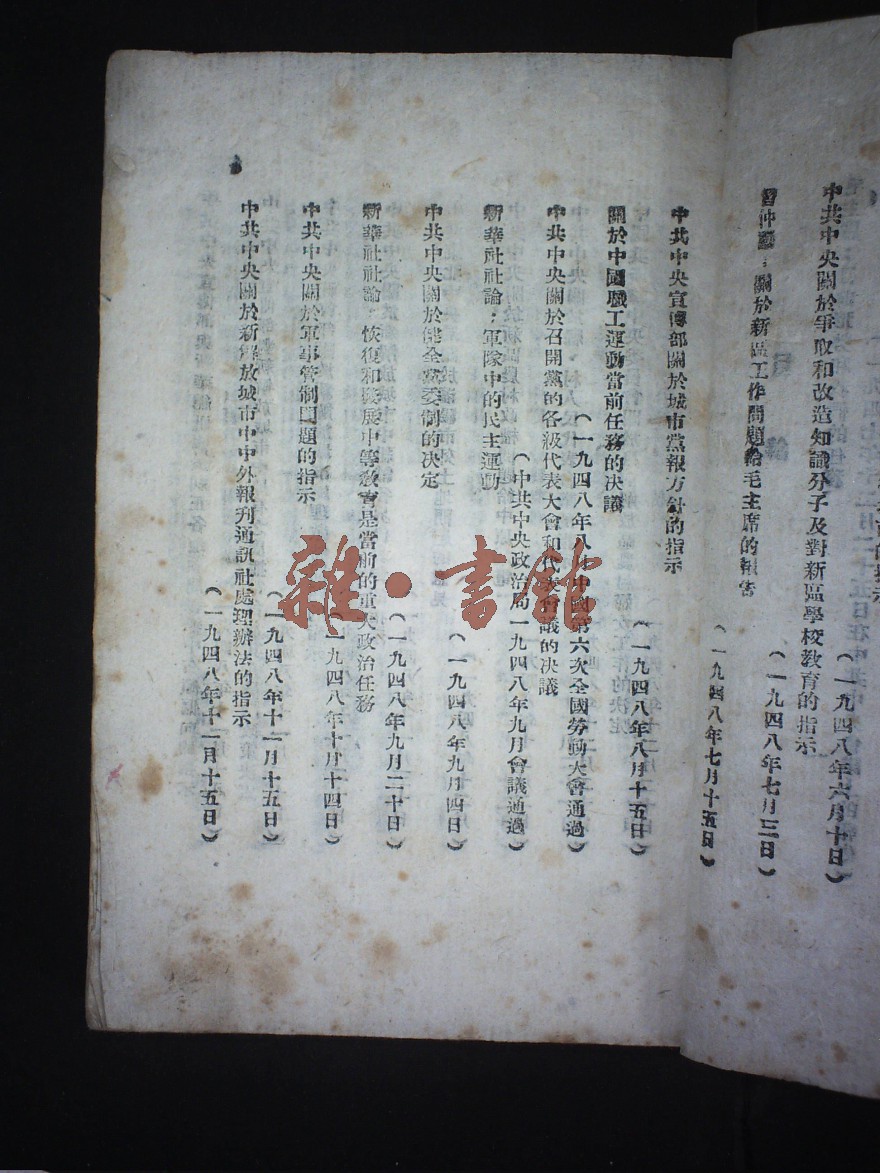 的指示
中共中央關於爭取和改造知識分子及對新區學校教育的指示
（一九四八年六月十日）
習仲勳：關於新區工作問題給毛主席的報告
（一九四八年七月十五日）
中共中央宣傳部關於城市黨報方針的指示
（一九四八年八月十五日）
關於中國職工運動當前任務的决議
（一九四八年八月中國第六次全國勞動大會通過）
中共中央關於召開黨的各級代表大會和代表會議的决議
（中共中央政治局一九四八年九月會議通過）
新華社社論：軍隊中的民主運動
中共中央關於健全黨委制的决定
（一九四八年九月四日）
新華社社論：恢復和發展中等教育是當前的重大政治任務
（一九四八年九月二十日）
中共中央關於軍事管制問題的指示
（一九四八年十月十四日）
中共中央關於新解放城市中中外報刊通訊社處理辦法的指示
（一九四八年十一月十五日）
雜·書館